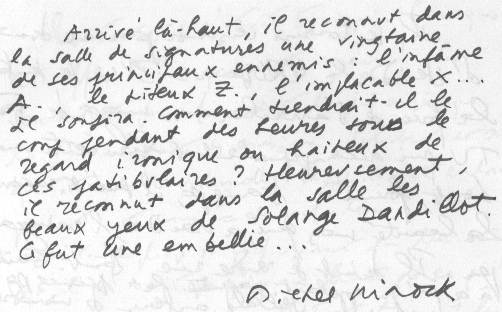 Arrivé là-haut, il reconnut dans
la salle de signatures une vingtaine
de ses principaux ennemis : l'infâme
A., le piteux Z., l'implacable X...
Il soupira. Comment tiendrait-il le
coup pendant des heures sous le
regard ironique ou haineux de
ces patibulaires ? Heureusement,
il reconnut dans la salle les
beaux yeux de Solange Dandillot.
Ce fut une embellie...
Michel Winock